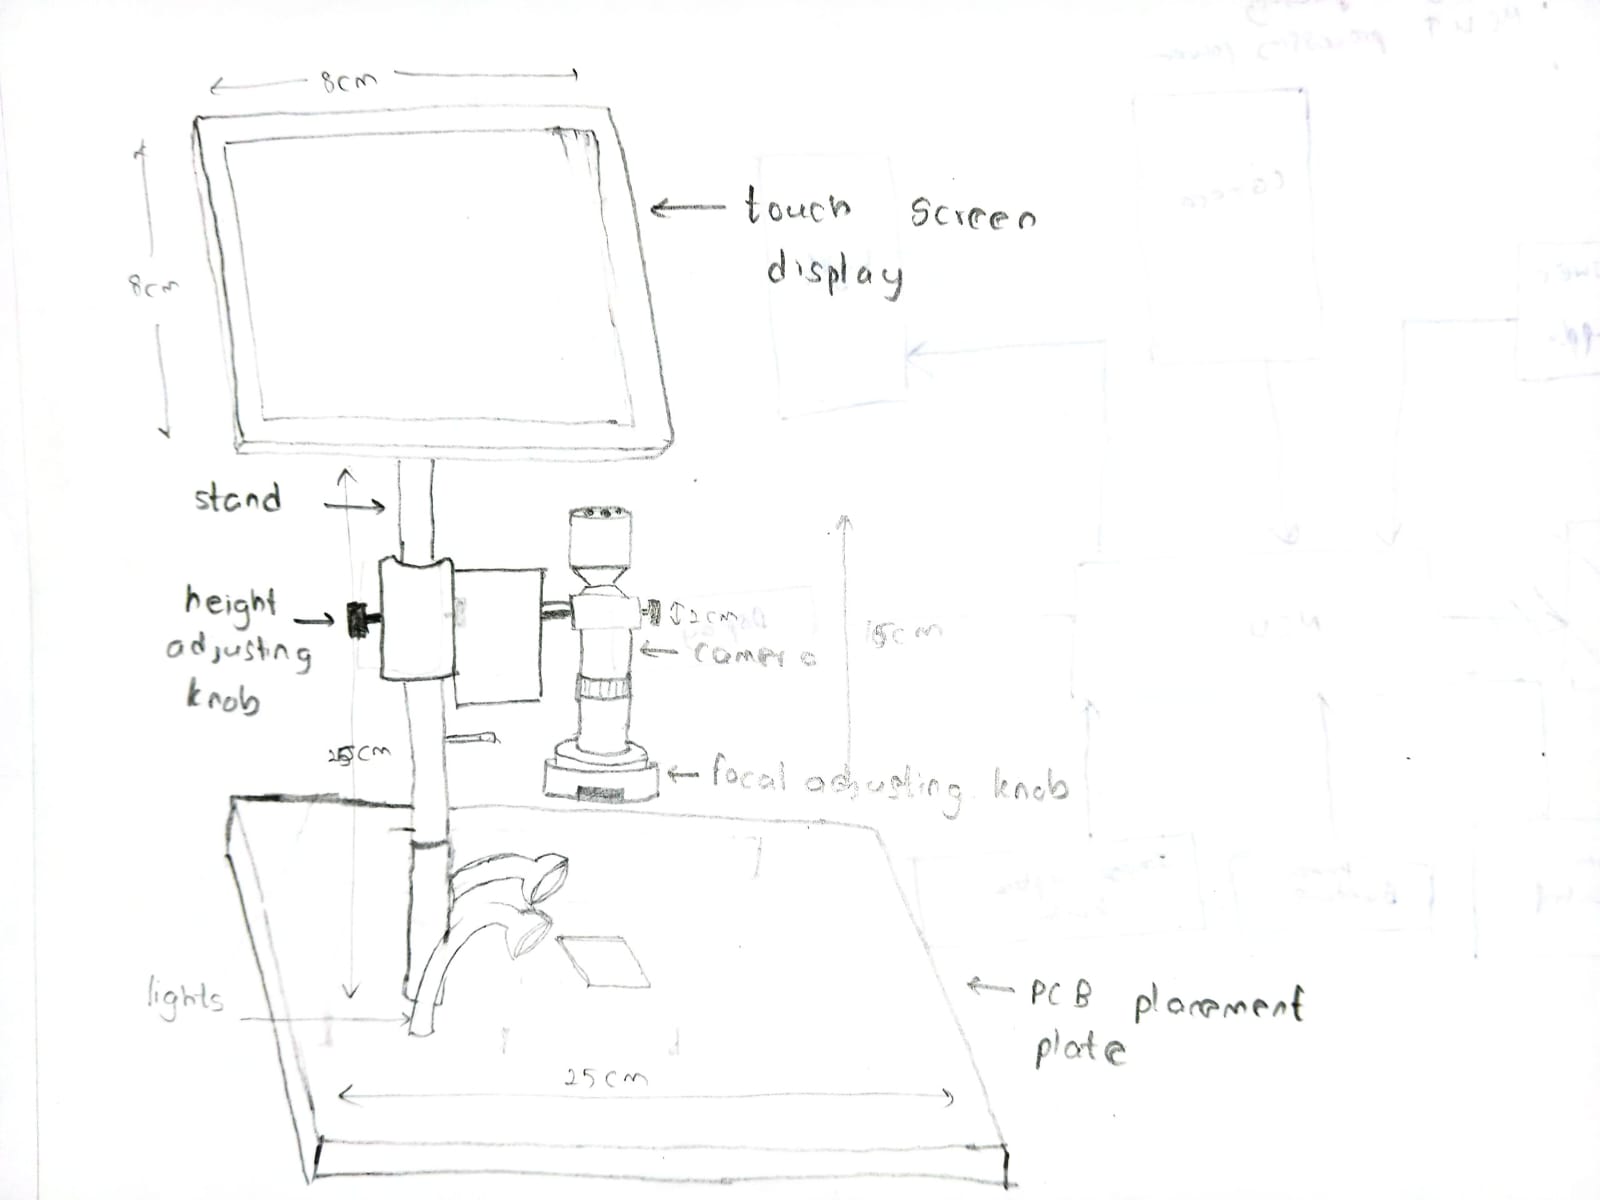 8cm
8cm
touch screen
display
stand
height
adjusting
knob
2cm
camera
15cm
25cm
focal adjusting knob
lights
PCB placement
plate
25cm